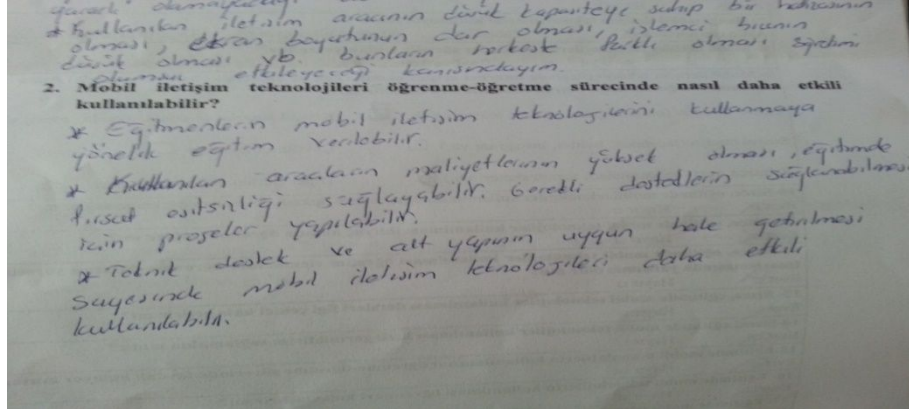 olamayacağı
* Kullanılan iletişim aracının düşük kapasiteye sahip bir hafızasının
olması, ekran boyutunun dar olması, işlemci hızının
düşük olması vb. bunların herkeste farklı olması öğretimi
olumsuz etkileyeceği kanısındayım.
2. Mobil iletişim teknolojileri öğrenme-öğretme sürecinde nasıl daha etkili
kullanılabilir?
* Eğitmenlerin mobil iletişim teknolojilerini kullanmaya
yönelik eğitim verilebilir.
* Kullanılan araçların maliyetlerinin yüksek olması, eğitimde
fırsat eşitsizliği sağlayabilir. Gerekli desteklerin sağlanabilmesi
için projeler yapılabilir.
* Teknik destek ve alt yapının uygun hale getirilmesi
sayesinde mobil iletişim teknolojileri daha etkili
kullanılabilir.